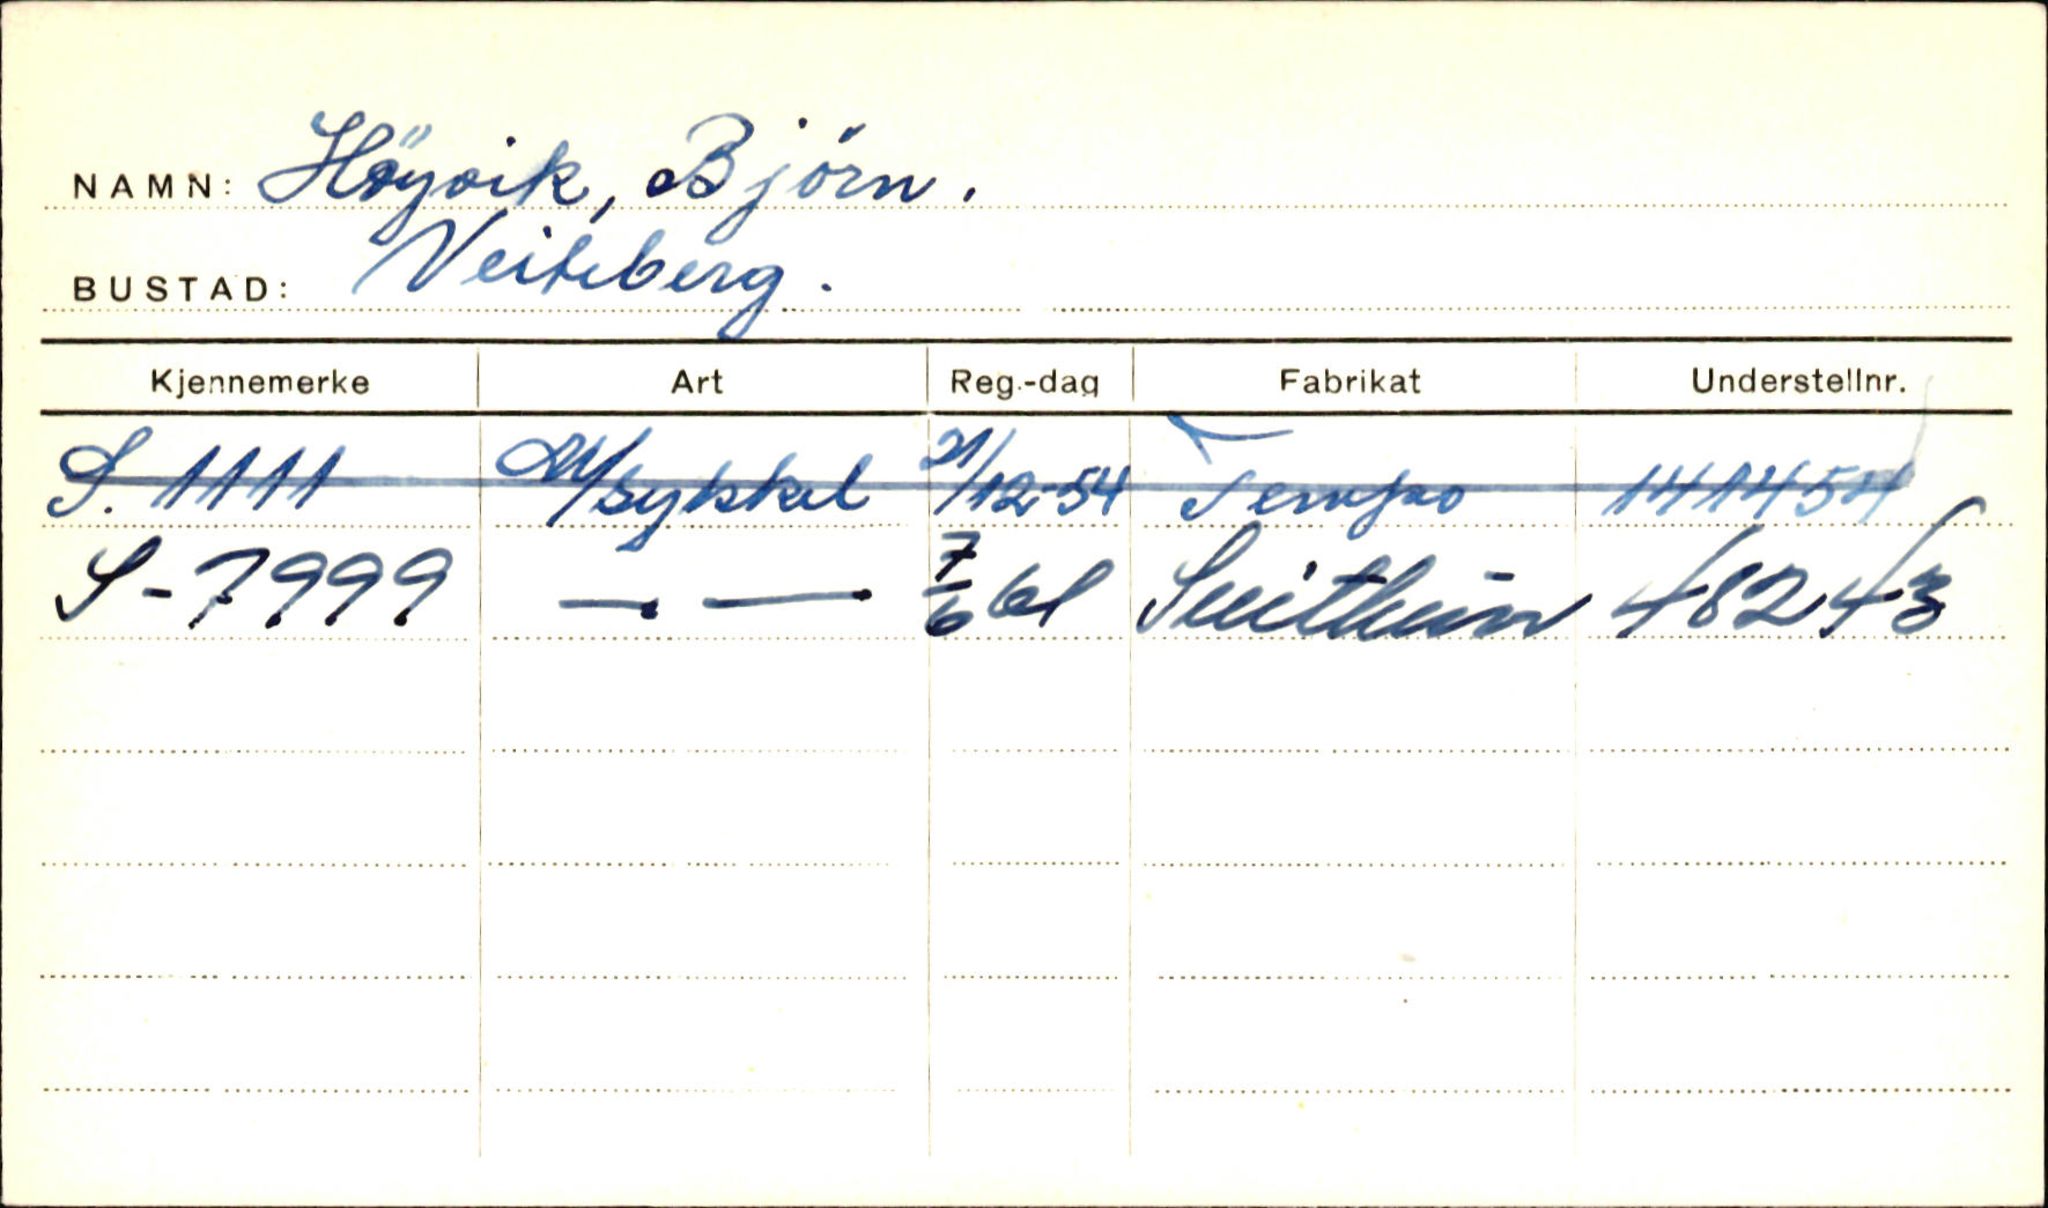 NAMN: Höyvik, Björn.
BUSTAD: Veiteberg.
Kjennemerke Art Reg.-dag Fabrikat Understellnr.
S. 1111 M/sykkel 21/12-54 Tempo 141454
S-7999 —.— 7/6 61 Suithun 48243